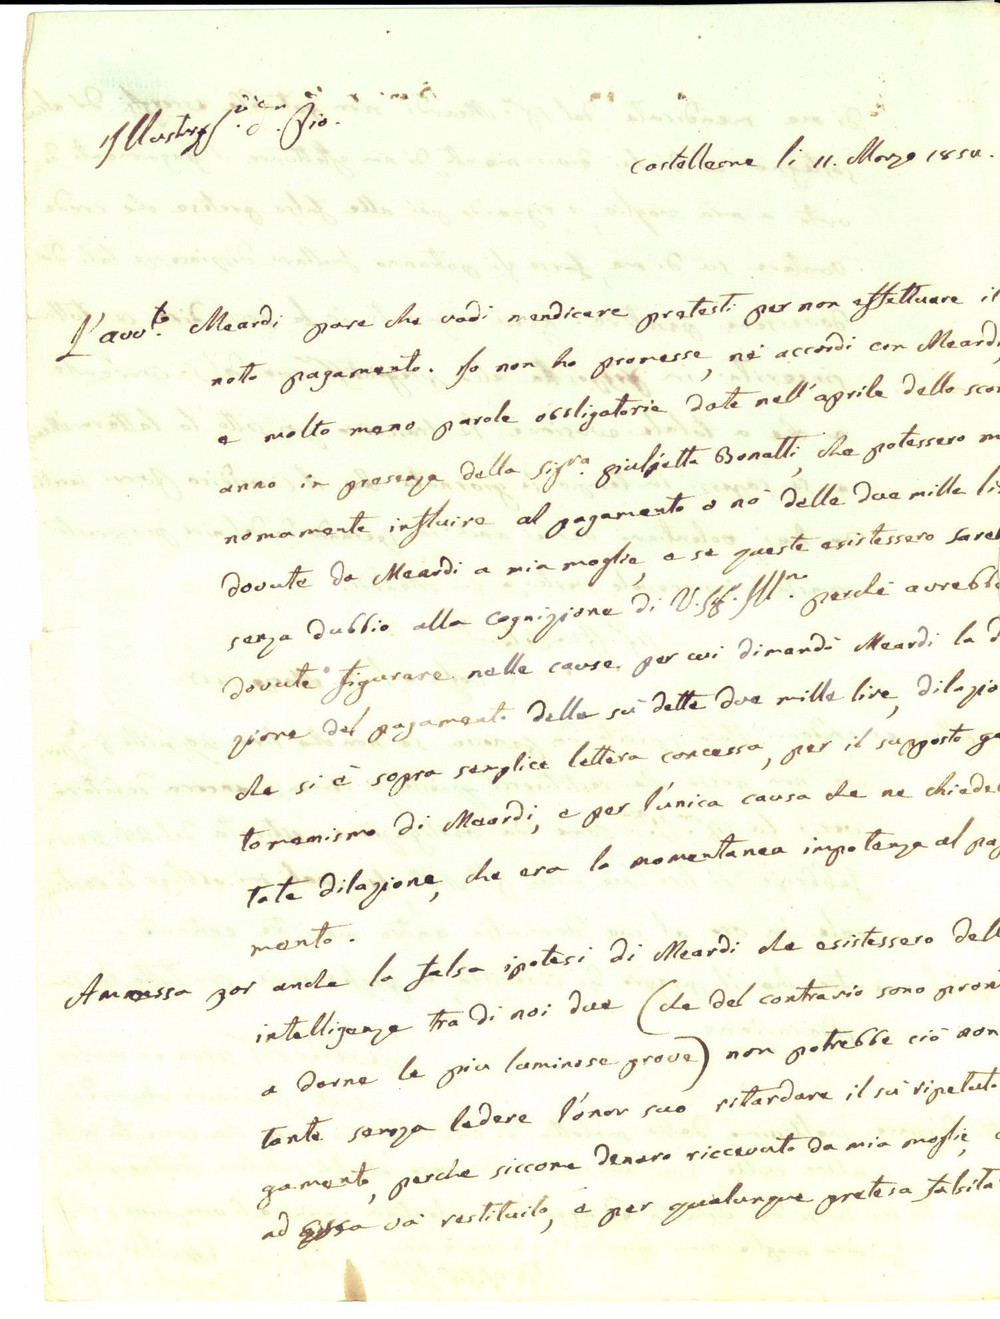 Illustr. Sig.r
Castelleone li 11. Marzo 1854.
L'avv.to Meardi pare che vadi mendicare pretesti per non effettuare il
noto pagamento. Io non ho promesse, nè accordi con Meardi,
e molto meno parole obbligatorie date nell'aprile dello scor
anno in presenza della Sig.ra Giulietta Bonatti, che potessero me
nomamente influire al pagamento o nò delle due mille li
dovute da Meardi a mia moglie, e se queste esistessero sare
senza dubbio alla cognizione di V.S. Ill. perchè avrebb
dovute figurare nelle cause per cui dimandò Meardi la d
zione del pagamento delle sù dette due mille lire, dilazio
che si è sopra semplice lettera concessa, per il supposto ga
tomenismo di Meardi, e per l'unica causa che ne chiede
tate dilazione, che era la momentanea impotenza al pag
mento.
Ammessa per anche la falsa ipotesi di Meardi che esistessero dell
intelligenze tra di noi due (che del contrario sono pron
a darne le più luminose prove) non potrebbe ciò non
tante senza ledere l'onor suo ritardare il sù ripetut
gamento, perchè siccome denaro riccevuto da mia moglie,
ad essa và restituito, e per qualunque pretesa falsità